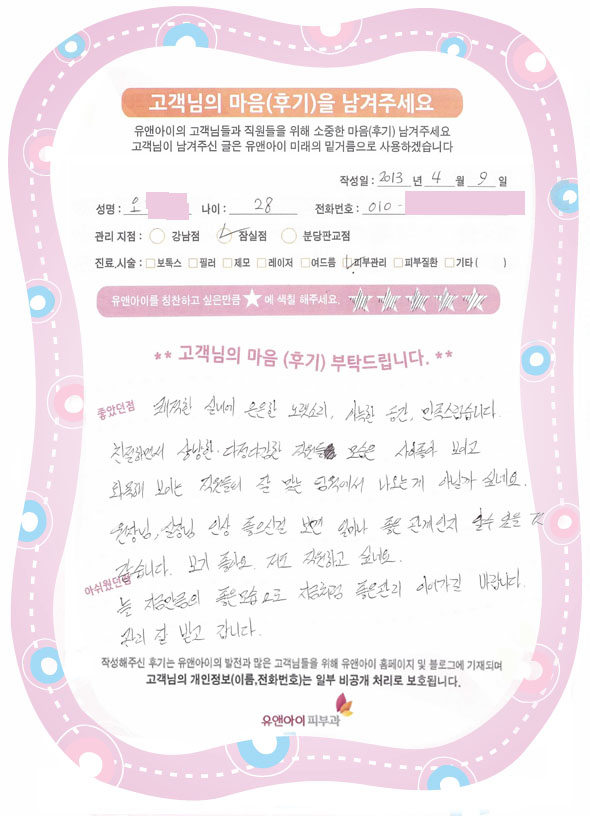 고객님의 마음(후기)을 남겨주세요
유앤아이의 고객님들과 직원들을 위해 소중한 마음(후기) 남겨주세요
고객님이 남겨주신 글은 유앤아이 미래의 밑거름으로 사용하겠습니다
작성일 : 2013 년 4 월 9 일
성명 : 오 나이 : 28 전화번호 : 010 -
관리 지점 : 강남점 잠실점 분당판교점
진료,시술 : 보톡스 필러 제모 레이저 여드름 피부관리 피부질환 기타 ( )
유앤아이를 칭찬하고 싶은만큼 ★ 에 색칠 해주세요.
** 고객님의 마음 (후기) 부탁드립니다. **
좋았던점
쾌적한 실내에 은은한 노랫소리, 시늑한 공간, 만족스럽습니다.
친절하면서 상냥한·다정다감한 직원들 모습은 사이좋아 보이고
화목해 보이는 직원들이 잘 맞는 에서 나오는게 아닐까 싶네요.
원장님, 실장님 인상 좋으신걸 보면 얼마나 좋은 관계인지 알수 있을 것
같습니다. 보기 좋아요. 저도 직원하고 싶네요.
아쉬웠던점
늘 지금만큼의 좋은모습으로 지금처럼 좋은관리 이어가길 바랍니다.
관리 잘 받고 갑니다.
작성해주신 후기는 유앤아이의 발전과 많은 고객님들을 위해 유앤아이 홈페이지 및 블로그에 기재되며
고객님의 개인정보(이름,전화번호)는 일부 비공개 처리로 보호됩니다.
유앤아이피부과